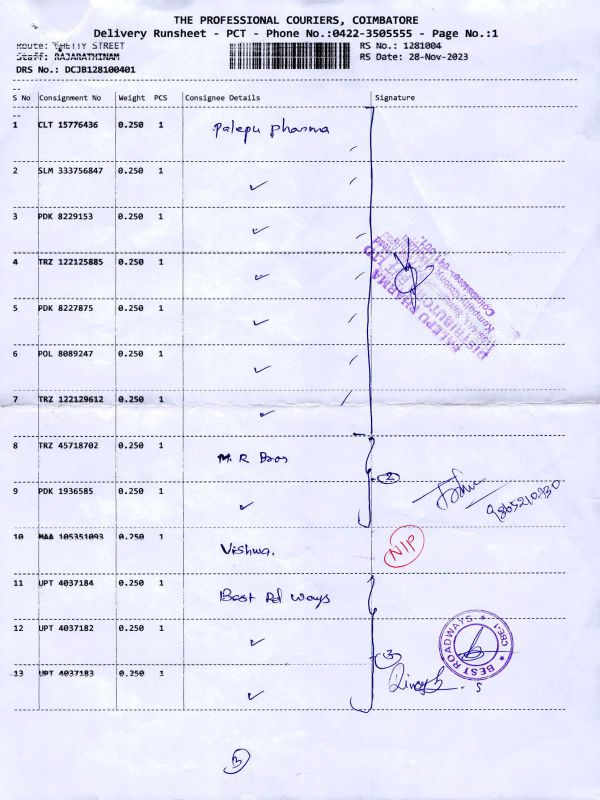 THE PROFESSIONAL COURIERS, COIMBATORE
Delivery Runsheet - PCT - Phone No.:0422-3505555 - Page No.:1
Route: CHETTY STREET RS No.: 1281004
Staff: RAJARATHINAM RS Date: 28-Nov-2023
DRS No.: DCJB128100401
S No Consignment No Weight PCS Consignee Details Signature
1 CLT 15776436 0.250 1 Palepu Pharma
2 SLM 333756847 0.250 1 ✓
3 PDK 8229153 0.250 1 ✓
4 TRZ 122125885 0.250 1 ✓
5 PDK 8227875 0.250 1 ✓
6 POL 8089247 0.250 1 ✓
7 TRZ 122129612 0.250 1 ✓
PALEPU PHARMA
DISTRIBUTORS PVT LTD
8 TRZ 45718702 0.250 1 M. R Bros
2
9 PDK 1936585 0.250 1 ✓
10 MAA 105351093 0.250 1 Vishwa. NIP
11 UPT 4037184 0.250 1 Best Rd ways
12 UPT 4037182 0.250 1 ✓
3
BEST ROADWAYS CBE-1
13 UPT 4037183 0.250 1 ✓